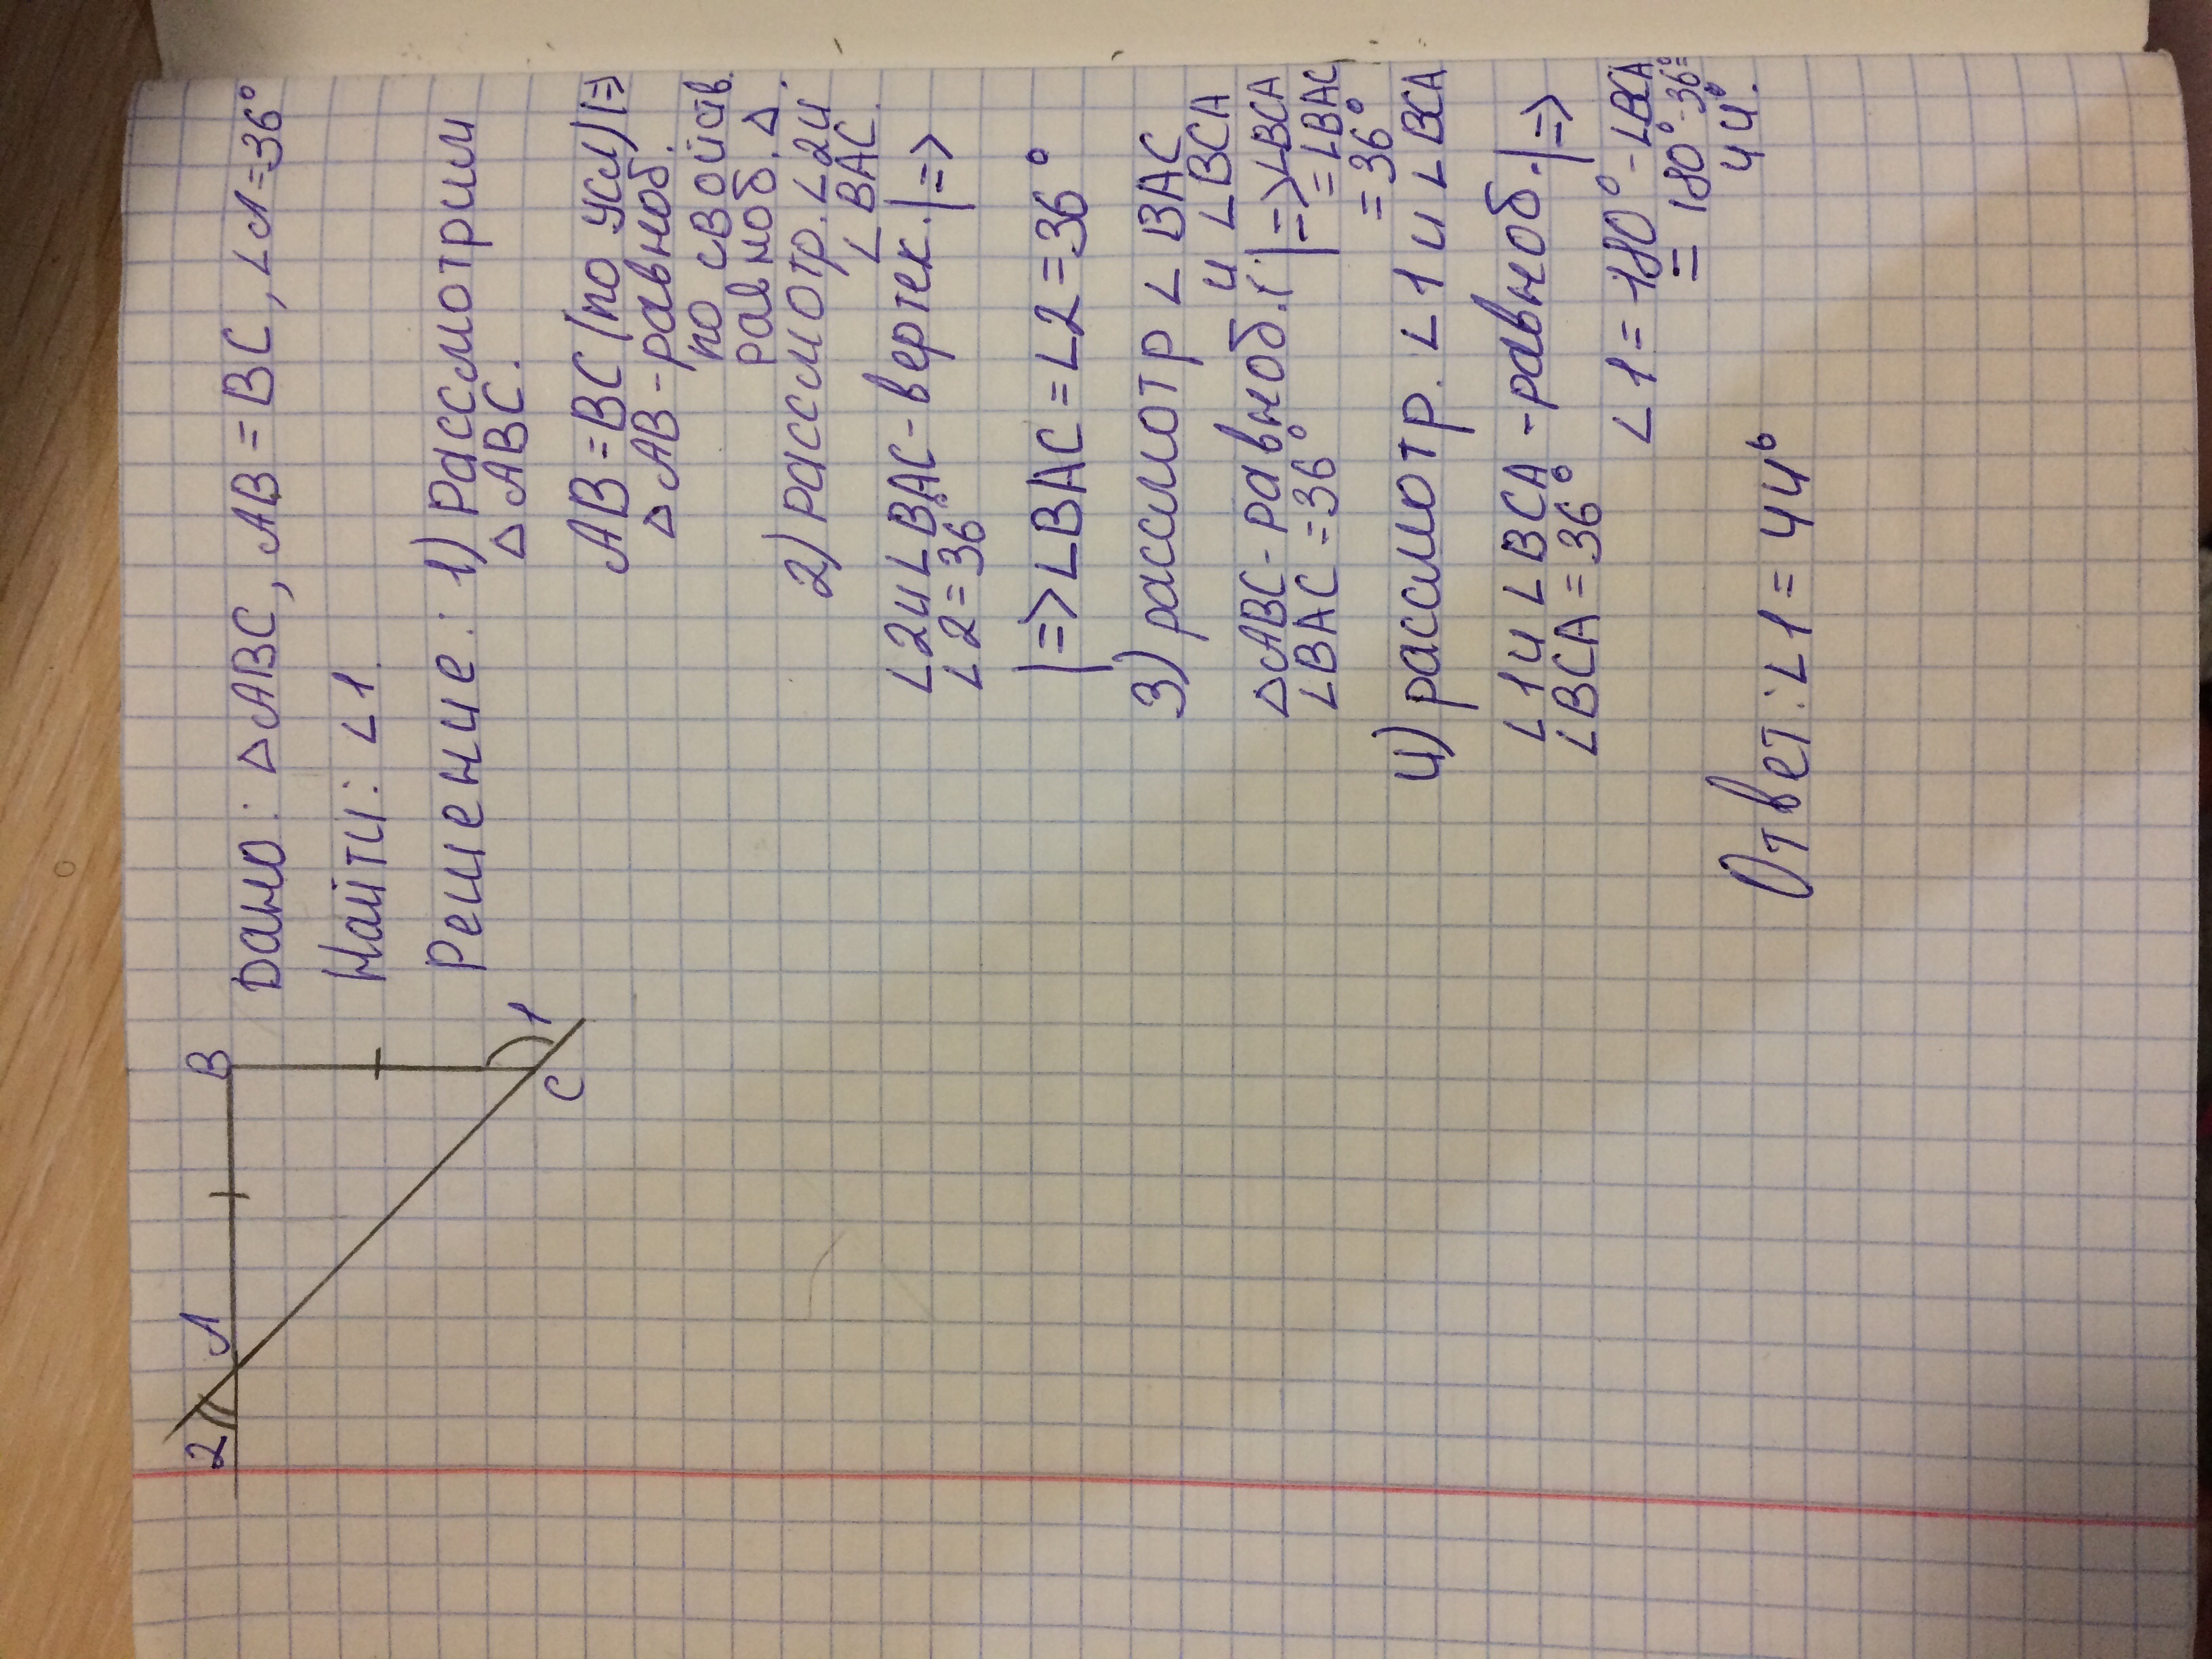 2
А
В
С
1
Дано: △ABC, AB=BC, ∠A=36°
Найти: ∠1.
Решение: 1) Рассмотрим
△ABC.
AB=BC (по усл) |=>
△AB-равноб.
по свойств.
равноб. △.
2) рассмотр. ∠2и
∠BAC.
∠2и∠BAC-вертек.|=>
∠2=36°
|=>∠BAC=∠2=36°
3) рассмотр ∠BAC
и ∠BCA
△ABC-равноб.|=>∠BCA
∠BAC=36° =∠BAC
=36°
4) рассмотр. ∠1 и ∠BCA
∠1и∠BCA-равноб.|=>
∠BCA=36°
∠1=180°-∠BCA
=180°-36°=
44°.
Ответ:∠1=44°